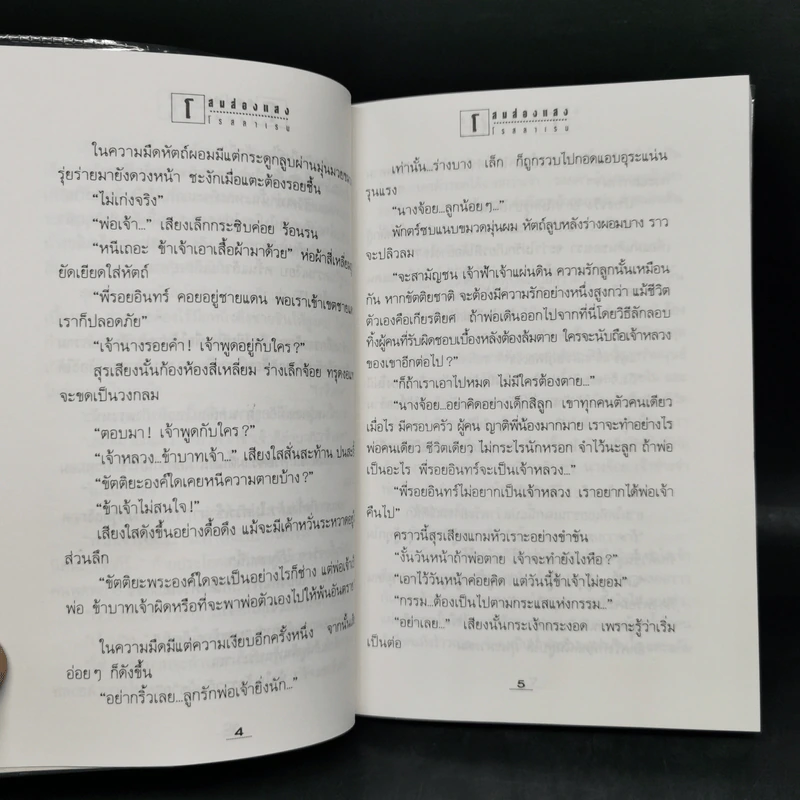 โ สนส่องแสง
โรสลาเรน
ในความมืดหัตถ์ผอมมีแต่กระดูกลูบผ่านมุ่นมวย
รุ่ยร่ายมายังดวงหน้า ชะงักเมื่อแตะต้องรอยชื้น
“ไม่เก่งจริง”
“พ่อเจ้า...” เสียงเล็กกระซิบค่อย ร้อนรน
“หนีเถอะ ข้าเจ้าเอาเสื้อผ้ามาด้วย” ห่อผ้าสี่เหลี่ยม
ยัดเยียดใส่หัตถ์
“พี่รอยอินทร์ คอยอยู่ชายแดน พอเราเข้าเขตชาย
เราก็ปลอดภัย”
“เจ้านางรอยคำ! เจ้าพูดอยู่กับใคร?”
สุรเสียงนั้นก้องห้องสี่เหลี่ยม ร่างเล็กจ้อย ทรุด
จะขดเป็นวงกลม
“ตอบมา! เจ้าพูดกับใคร?”
“เจ้าหลวง...ข้าบาทเจ้า...” เสียงใสสั่นสะท้าน
“ขัตติยะองค์ใดเคยหนีความตายบ้าง?”
“ข้าเจ้าไม่สนใจ!”
เสียงใสดังขึ้นอย่างดื้อดึง แม้จะมีเค้าหวั่นระหวาด
ส่วนลึก
“ขัตติยะพระองค์ใดจะเป็นอย่างไรก็ช่าง แต่พ่อเจ้า
พ่อ ข้าบาทเจ้าผิดหรือที่จะพาพ่อตัวเองไปให้พ้นอันตราย
ในความมืดมีแต่ความเงียบอีกครั้งหนึ่ง จากนั้น
อ่อยๆ ก็ดังขึ้น
“อย่ากริ้วเลย...ลูกรักพ่อเจ้ายิ่งนัก...”
4
โ สนส่องแสง
โรสลาเรน
เท่านั้น...ร่างบาง เล็ก ก็ถูกรวบไปกอดแอบอุระแน่น
รุนแรง
“นางจ้อย...ลูกน้อยๆ...”
พักตร์ซบแนบขมวดมุ่นผม หัตถ์ลูบหลังร่างผอมบาง ราว
จะปลิวลม
“จะสามัญชน เจ้าฟ้าเจ้าแผ่นดิน ความรักลูกนั้นเหมือน
กัน หากขัตติยชาติ จะต้องมีความรักอย่างหนึ่งสูงกว่า แม้ชีวิต
ตัวเองคือเกียรติยศ ถ้าพ่อเดินออกไปจากที่นี่โดยวิธีลักลอบ
ทิ้งผู้คนที่รับผิดชอบเบื้องหลังต้องล้มตาย ใครจะนับถือเจ้าหลวง
ของเขาอีกต่อไป?”
“ก็ถ้าเราเอาไปหมด ไม่มีใครต้องตาย...”
“นางจ้อย...อย่าคิดอย่างเด็กสิลูก เขาทุกคนตัวคนเดียว
เมื่อไร มีครอบครัว ผู้คน ญาติพี่น้องมากมาย เราจะทำอย่างไร
พ่อคนเดียว ชีวิตเดียว ไม่กระไรนักหรอก จำไว้นะลูก ถ้าพ่อ
เป็นอะไร พี่รอยอินทร์จะเป็นเจ้าหลวง...”
“พี่รอยอินทร์ไม่อยากเป็นเจ้าหลวง เราอยากได้พ่อเจ้า
คืนไป”
คราวนี้สุรเสียงแกมหัวเราะอย่างขำขัน
“งั้นวันหน้าถ้าพ่อตาย เจ้าจะทำยังไงหือ?”
“เอาไว้วันหน้าค่อยคิด แต่วันนี้ข้าเจ้าไม่ยอม”
“กรรม...ต้องเป็นไปตามกระแสแห่งกรรม...”
“อย่าเลย...” เสียงนั้นกระเง้ากระงอด เพราะรู้ว่าเริ่ม
เป็นต่อ
5